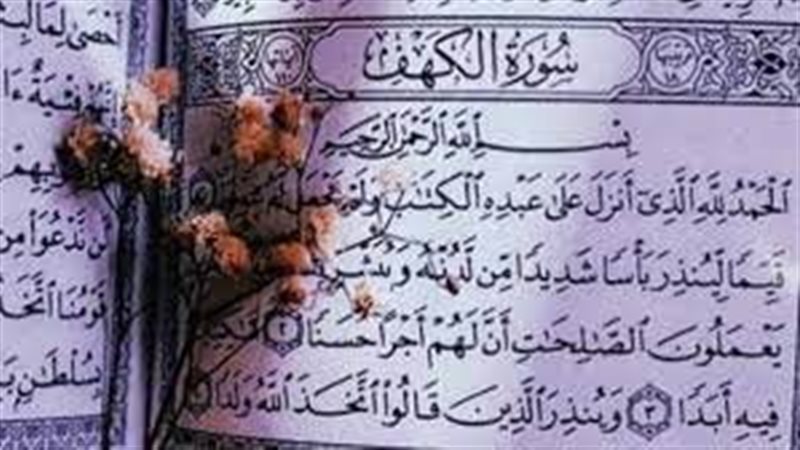 سُورَةُ الكَهْفِ
بِسْمِ ٱللَّهِ ٱلرَّحْمَٰنِ ٱلرَّحِيمِ
ٱلْحَمْدُ لِلَّهِ ٱلَّذِىٓ أَنزَلَ عَلَىٰ عَبْدِهِ ٱلْكِتَٰبَ وَلَمْ يَجْعَل لَّهُۥ
قَيِّمًا لِّيُنذِرَ بَأْسًا شَدِيدًا مِّن لَّدُنْهُ وَيُبَشِّرَ
يَعْمَلُونَ ٱلصَّٰلِحَٰتِ أَنَّ لَهُمْ أَجْرًا حَسَنًا ٢
فِيهِ أَبَدًا ٣ وَيُنذِرَ ٱلَّذِينَ قَالُوا۟ ٱتَّخَذَ ٱللَّهُ وَلَدًا
أَحْصَىٰ لِمَا
فِتْيَةٌ
لَن نَّدْعُوَا۟ مِن
قَوْمُنَا
سُلْطَٰنٍ